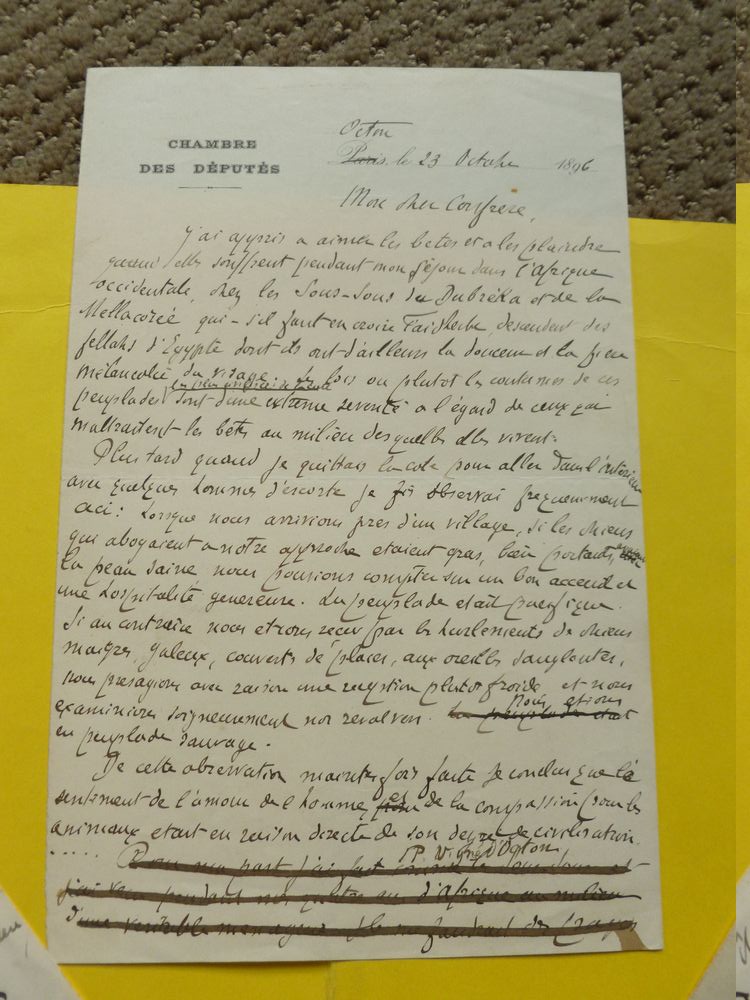 CHAMBRE
DES DÉPUTÉS
Octon
Paris, le 23 Octobre 1896
Mon cher Confrere,
J'ai appris a aimer les betes et a les plaindre
quand elles souffrent pendant mon séjour dans l'Afrique
occidentale, chez les Sous-Sous du Dubréka et de la
Mellacorée qui - s'il faut en croire Faidherbe descendent des
fellahs d'Egypte dont ils ont d'ailleurs la douceur et la fiere
mélancolie du visage. Les lois ou plutot les coutumes de ces
peuplades sont d'une extreme severité a l'égard de ceux qui
maltraitent les betes au milieu desquelles elles vivent.
Plus tard quand je quittais la cote pour aller dans l'interieur
avec quelques hommes d'escorte je observai frequemment
ceci: Lorsque nous arrivions pres d'un village, si les chiens
qui aboyaient a notre approche etaient gras, bien portants,
la peau saine nous pouvions compter sur un bon accueil et
une hospitalité genereuse. La peuplade etait pacifique.
Si au contraire nous etions recus par les hurlements de chiens
maigres, galeux, couverts de places, aux oreilles sanglantes,
nous presagions avec raison une reception plutot froide et nous
examinions soigneusement nos revolvers. La peuplade etait
Nous etions
en peuplade sauvage.
De cette observation maintes fois faite je conclus que le
sentiment de l'amour de l'homme et de la compassion pour les
animaux etait en raison directe de son degre de civilisation.
..... P. Vigné d'Octon
Pour ma part j'ai
j'ai vecu pendant mes quatre ans d'Afrique au milieu
d'une veritable menagerie